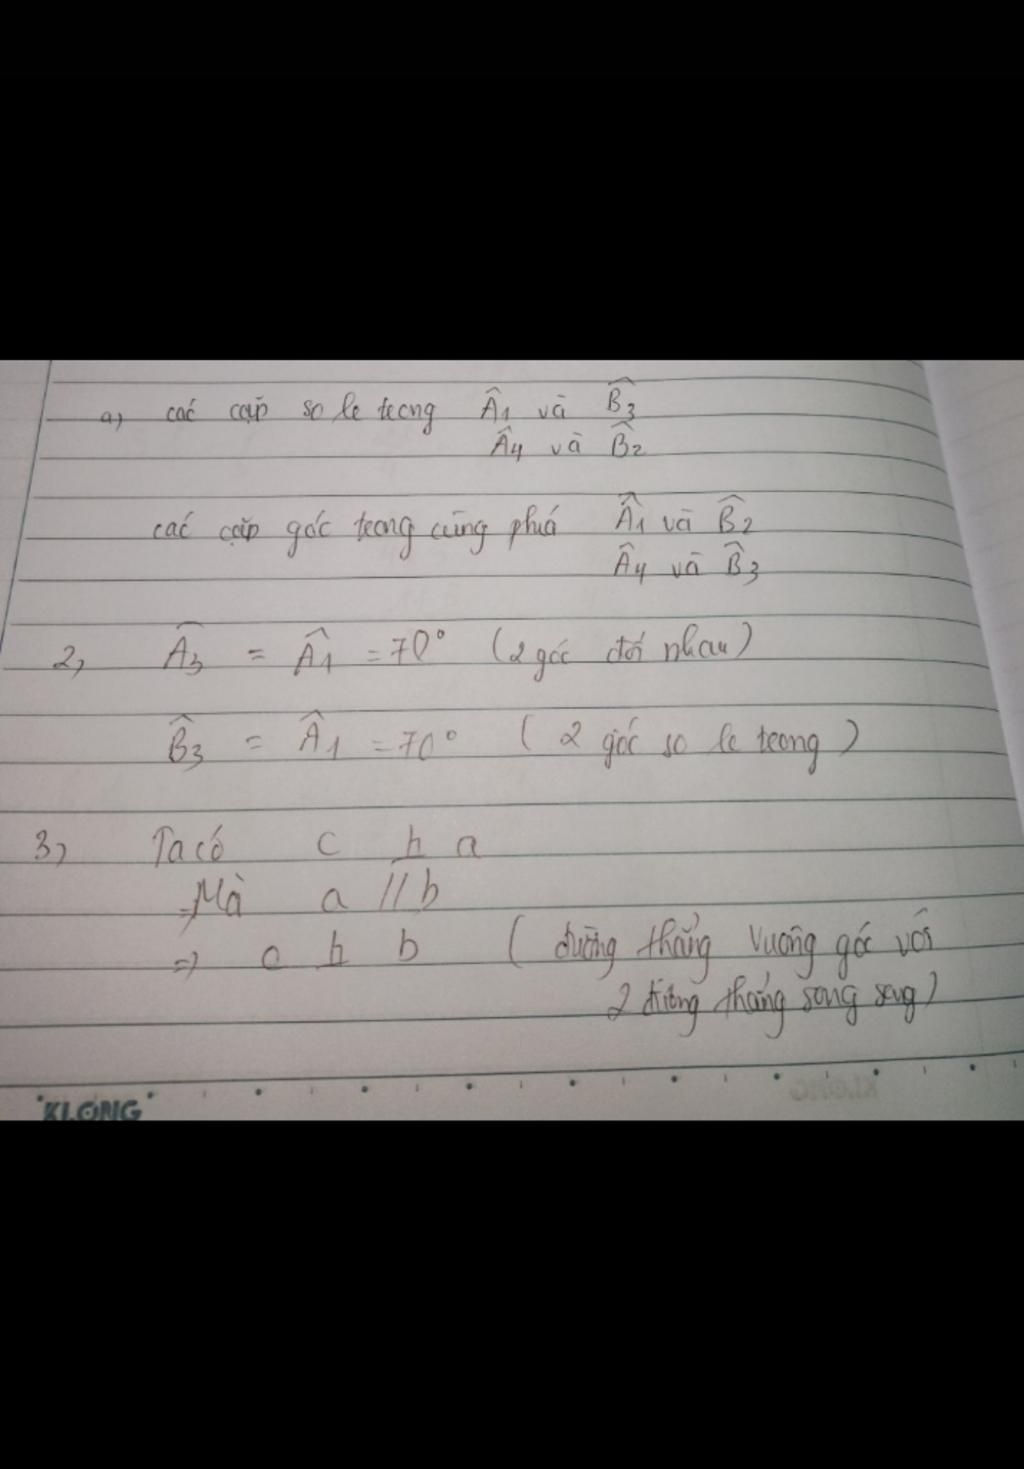 a, các cặp so le trong Â1 và B̂3
Â4 và B̂2
các cặp góc trong cùng phía Â1 và B̂2
Â4 và B̂3
2, Â3 = Â1 = 70° (2 góc đối nhau)
B̂3 = Â1 = 70° ( 2 góc so le trong )
3, Ta có c ⊥ a
Mà a // b
=> c ⊥ b ( đường thẳng vuông góc với
2 đường thẳng song song)
KLONG